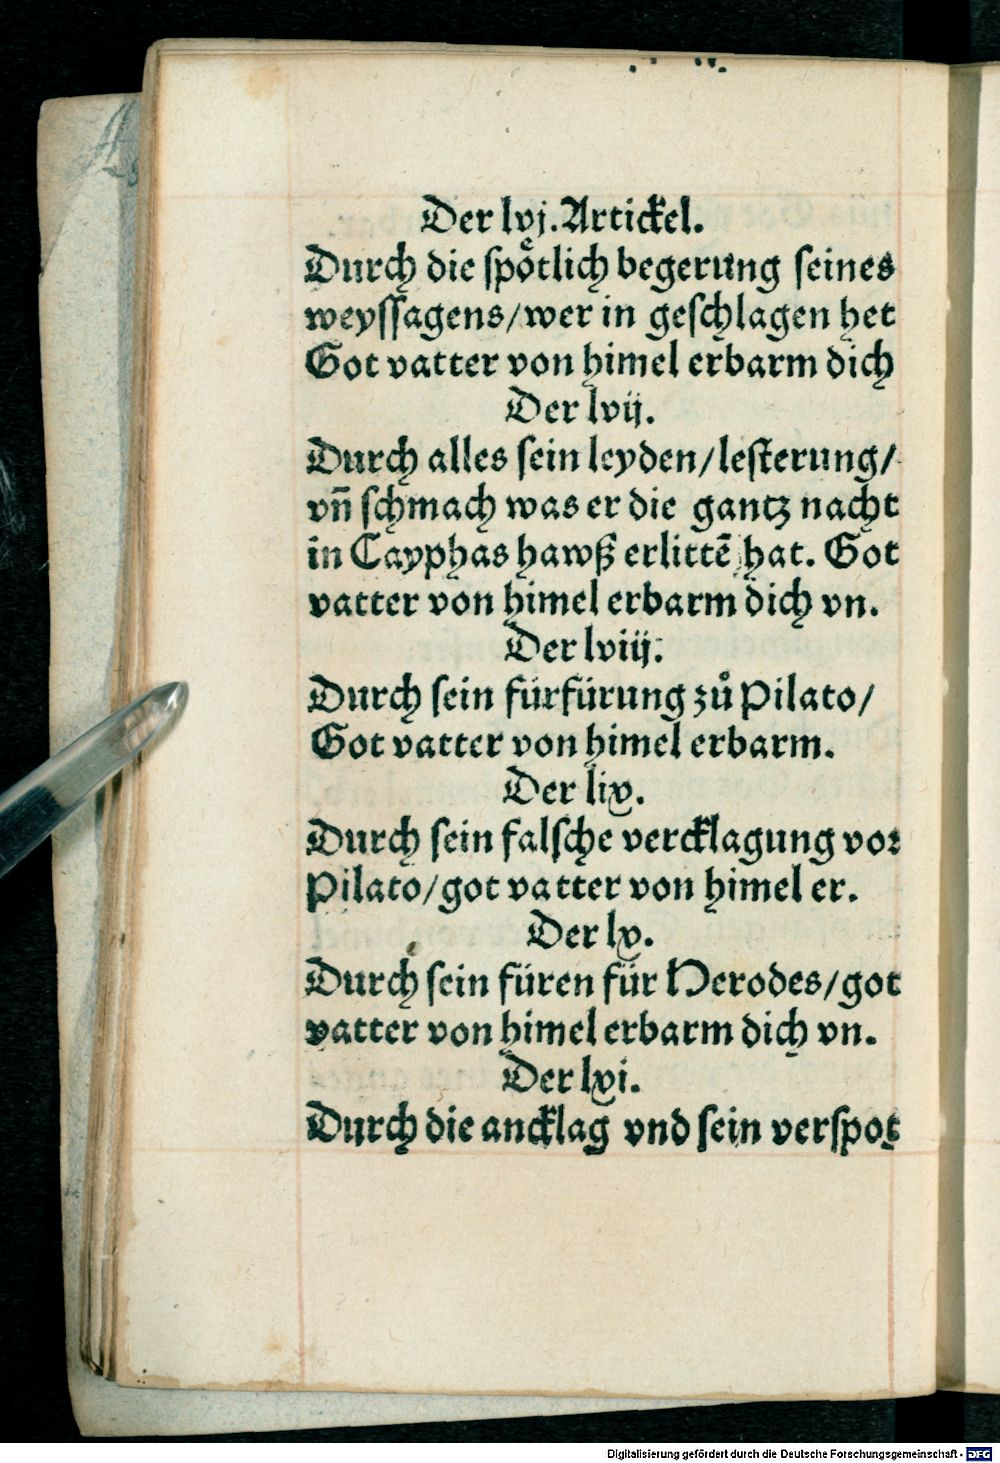 Der lvj. Artickel.
Durch die spoͤtlich begerung seines
weyssagens/wer in geschlagen het
Got vatter von himel erbarm dich
Der lvij.
Durch alles sein leyden/lesterung/
vn̄ schmach was er die gantz nacht
in Cayphas hawß erlittē hat. Got
vatter von himel erbarm dich vn.
Der lviij.
Durch sein fürfürung zuͦ Pilato/
Got vatter von himel erbarm.
Der lix.
Durch sein falsche vercklagung vor
Pilato/got vatter von himel er.
Der lx.
Durch sein füren für Herodes/got
vatter von himel erbarm dich vn.
Der lxi.
Durch die ancklag vnd sein verspot
Digitalisierung gefördert durch die Deutsche Forschungsgemeinschaft - DFG